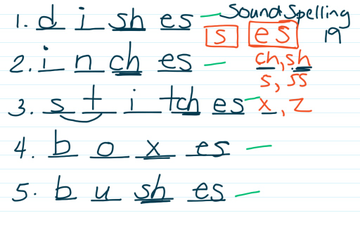 1. d i sh es
Sound Spelling 19
s es
2. i n ch es
ch, sh
s, ss
3. s t i tch es
x, z
4. b o x es
5. b u sh es